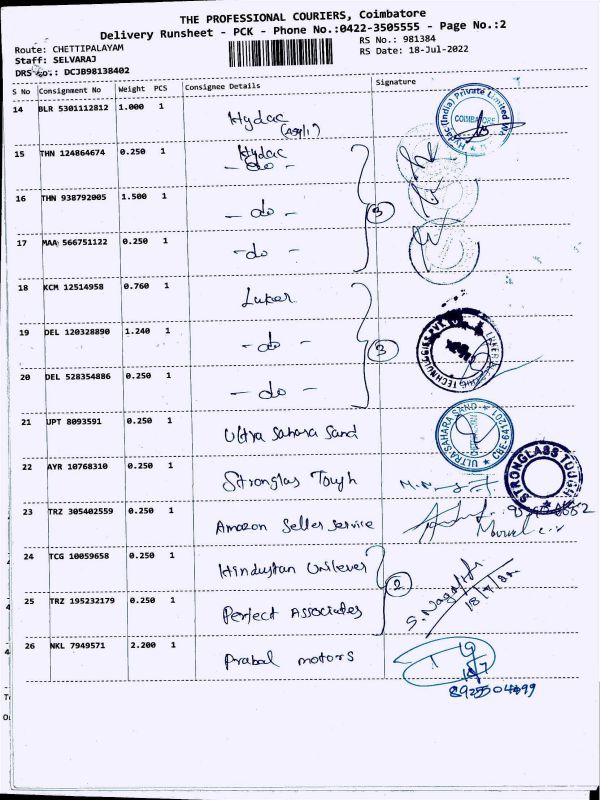 THE PROFESSIONAL COURIERS, Coimbatore
Delivery Runsheet - PCK - Phone No.:0422-3505555 - Page No.:2
Route: CHETTIPALAYAM
RS No.: 981384
Staff: SELVARAJ
RS Date: 18-Jul-2022
DRS No.: DCJB98138402
S No Consignment No Weight PCS Consignee Details Signature
14 BLR 5301112812 1.000 1 Hydac
COIMBATORE
15 THN 124864674 0.250 1 Hydac
- do -
16 THN 938792005 1.500 1 - do -
3
17 MAA 566751122 0.250 1 - do -
18 KCM 12514958 0.760 1 Luker
19 DEL 120328890 1.240 1 - do -
3
20 DEL 528354886 0.250 1 - do -
21 UPT 8093591 0.250 1 Ultra Sahara Sand
ULTRA SAHARA SAND
22 AYR 10768310 0.250 1 Stronglas Tough
STRONGLASS TOUGH
23 TRZ 305402559 0.250 1 Amazon Seller Service
24 TCG 10059658 0.250 1 Hindustan Unilever
2
25 TRZ 195232179 0.250 1 Perfect Associates
26 NKL 7949571 2.200 1 Prabal motors